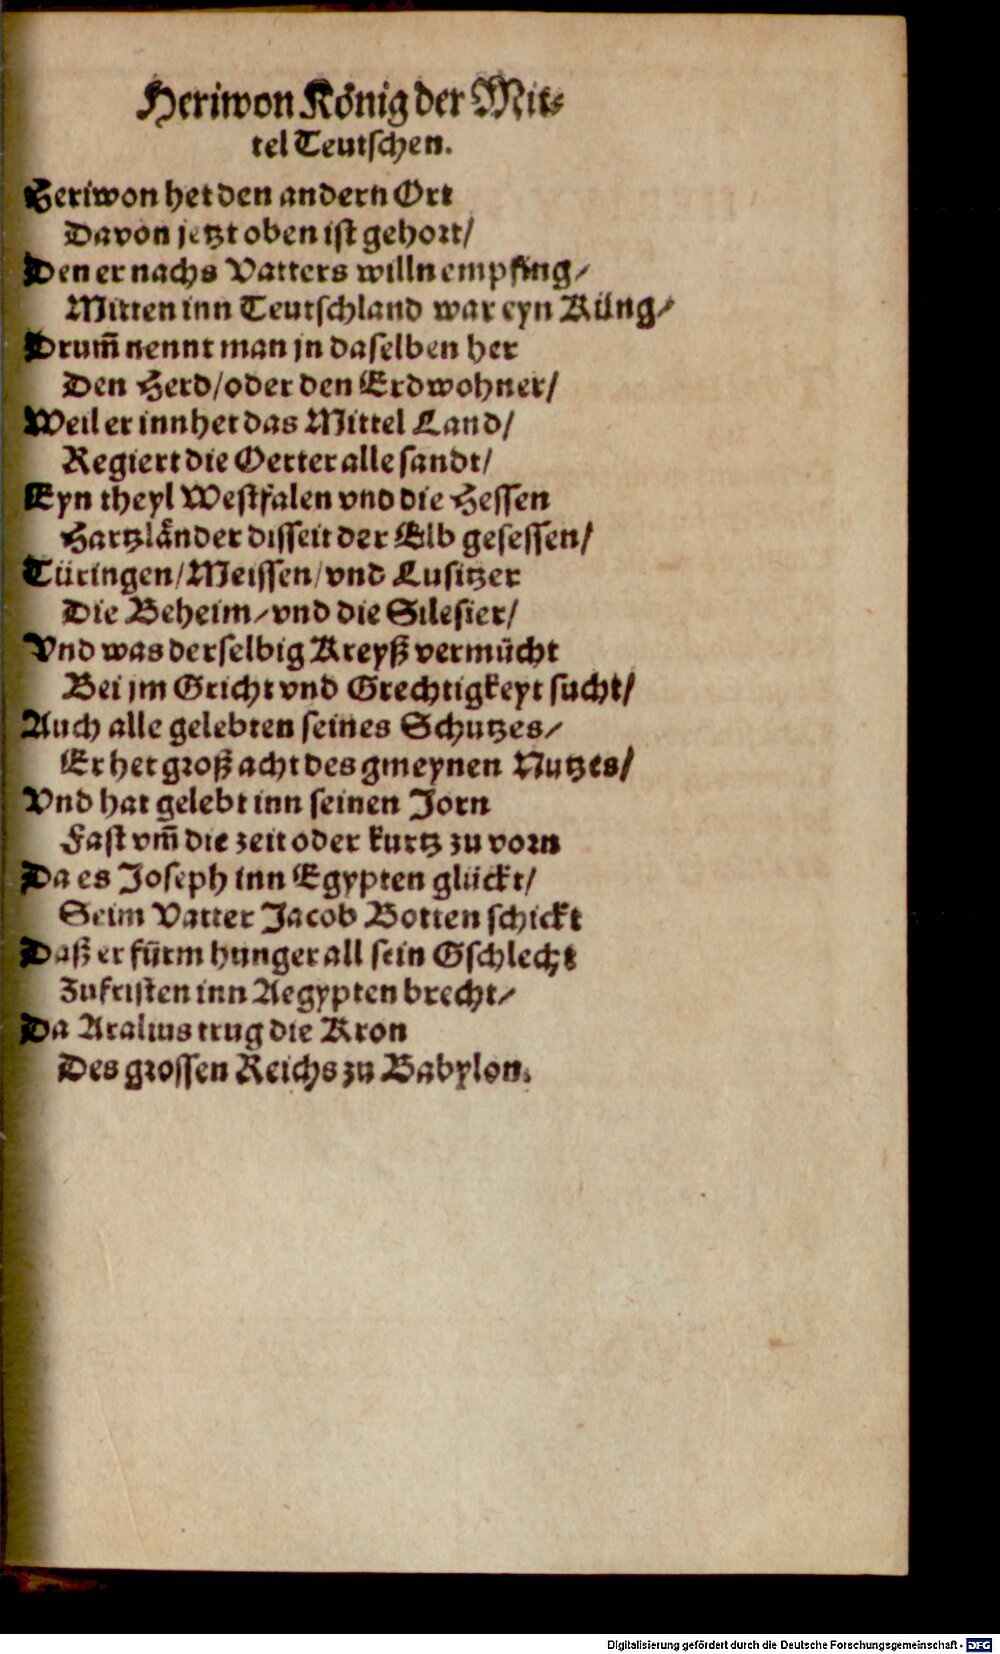 Heriwon König der Mit⸗
tel Teutschen.
Heriwon het den andern Ort
Davon jetzt oben ist gehort/
Den er nachs Vatters willn empfing/
Mitten inn Teutschland war eyn Küng/
Drum̃ nennt man jn daselben her
Den Herd/oder den Erdwohner/
Weil er innhet das Mittel Land/
Regiert die Oerter alle sandt/
Eyn theyl Westfalen vnd die Hessen
Hartzländer disseit der Elb gesessen/
Türingen/Meissen/vnd Lusitzer
Die Beheim/vnd die Silesier/
Vnd was derselbig Kreyß vermücht
Bei jm Gricht vnd Grechtigkeyt sucht/
Auch alle gelebten seines Schutzes/
Er het groß acht des gmeynen Nutzes/
Vnd hat gelebt inn seinen Jorn
Fast vm̃ die zeit oder kurtz zu vorn
Da es Joseph inn Egypten glückt/
Seim Vatter Jacob Botten schickt
Daß er fürm hunger all sein Gschlecht
Zufristen inn Aegypten brecht/
Da Aralius trug die Kron
Des grossen Reichs zu Babylon.
Digitalisierung gefördert durch die Deutsche Forschungsgemeinschaft - DFG